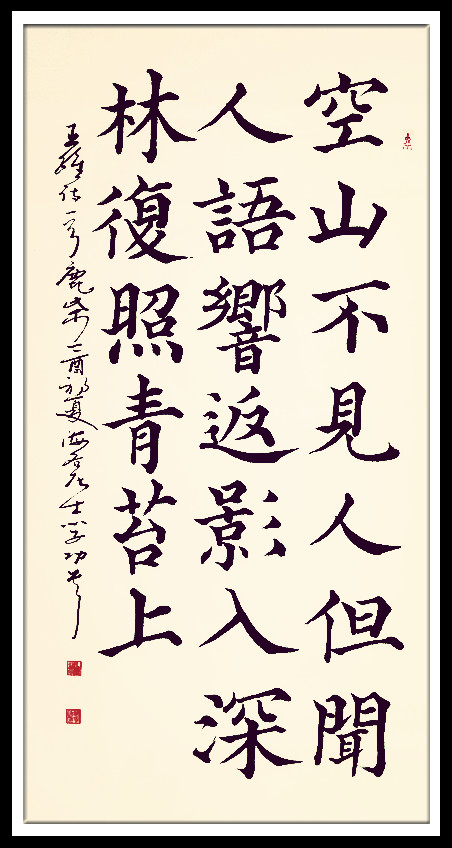 空山不見人但聞
人語響返影入深
林復照青苔上
王維詩一首鹿柴乙酉初夏